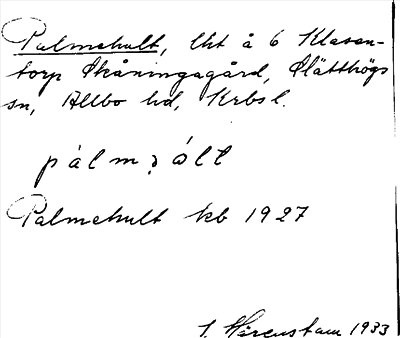 Palmehult, lht å 6 Klasen-
torp Skåningagård, Slätthögs
sn, Allbo hd, Krbsl.
pálmɂòlt
Palmehult kb 1927
1933